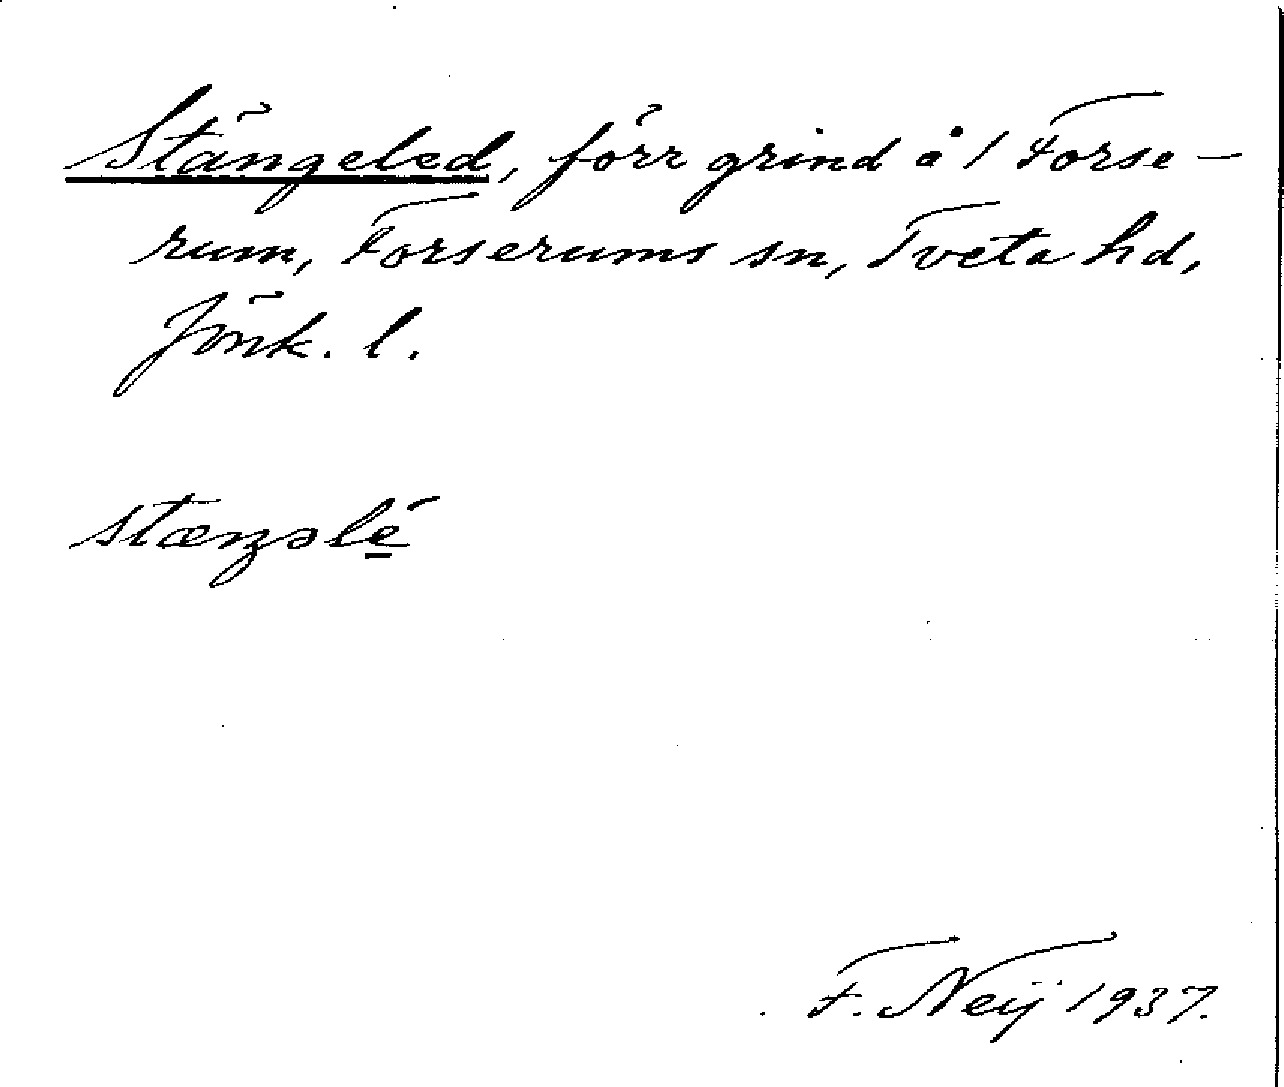 Stängeled, förr grind å / Forse-
rum, Forserums sn, Tveta hd,
Jönk. l.
stæŋəlé
F. Neij 1937.